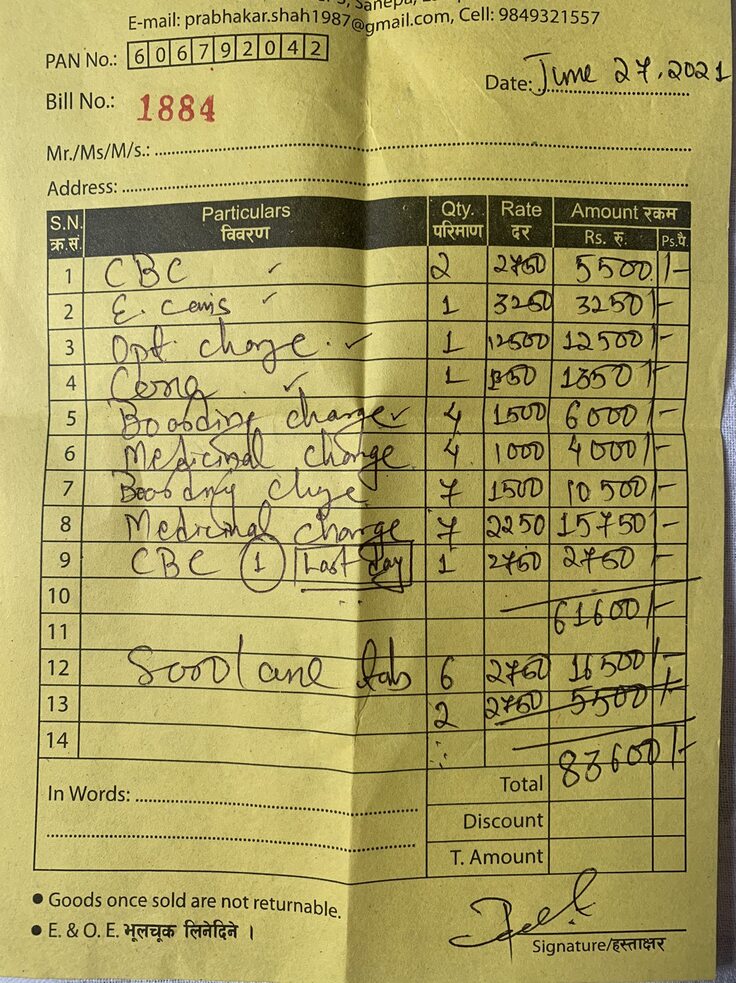 Sanepa,
E-mail: prabhakar.shah1987@gmail.com, Cell: 9849321557
PAN No.: 606792042
Date: June 27, 2021
Bill No.: 1884
Mr./Ms/M/s.:
Address:
S.N. क्र.सं. Particulars विवरण Qty. परिमाण Rate दर Amount रकम Rs. रु. Ps.पै.
1 CBC ✓ 2 2750 5500 /-
2 E. canis ✓ 1 3250 3250 /-
3 Opt. charge. ✓ 1 12500 12500 /-
4 ✓ 1 1350 1350 /-
5 Boarding charge ✓ 4 1500 6000 /-
6 Medicinal charge 4 1000 4000 /-
7 Boarding chrge 7 1500 10500 /-
8 Medicinal charge 7 2250 15750 /-
9 CBC 1 Last day 1 2750 2750 /-
10 61600 /-
11
12 tab 6 2750 16500 /-
13 2 2750 5500 /-
14
Total 83600 /-
In Words:
Discount
T. Amount
● Goods once sold are not returnable.
● E. & O. E. भूलचूक लिनेदिने ।
Signature/हस्ताक्षर